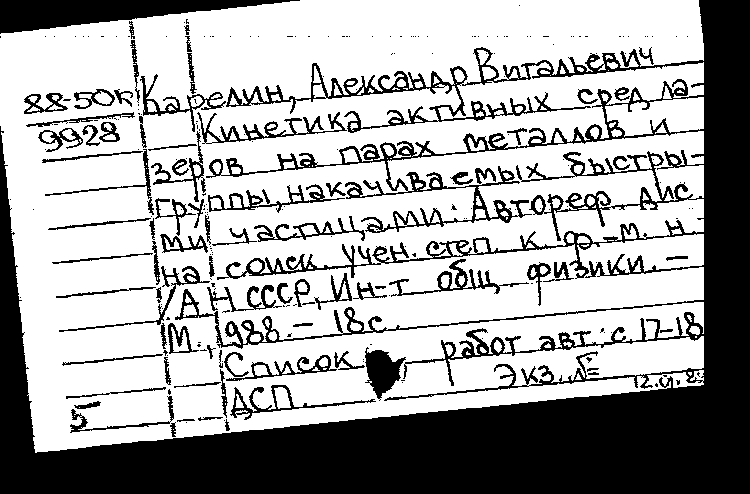 88-50к
9928
Карелин, Александр Витальевич
Кинетика активных сред ла-
зеров на парах металлов и
группы, накачиваемых быстры-
ми частицами: Автореф. дис.
на соиск. учен. степ. к. ф.-м. н.
/АН СССР, Ин-т общ. физики. –
М., 1988. – 18 с.
Список работ авт.: с. 17-18
ДСП. Экз. №
5